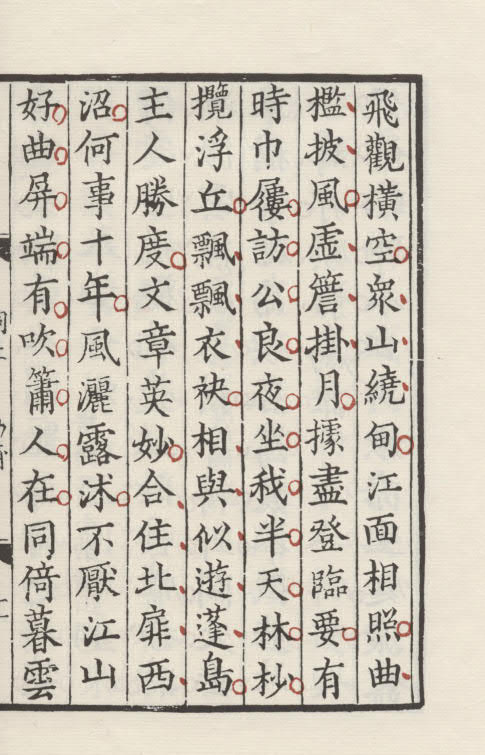 飛觀橫空衆山繞甸江面相照曲
檻披風虛簷掛月據盡登臨要有
時巾屨訪公良夜坐我半天林杪
攬浮丘飄飄衣袂相與似遊蓬島
主人勝度文章英妙合住北扉西
沼何事十年風灑露沭不厭江山
好曲屏端有吹簫人在同倚暮雲